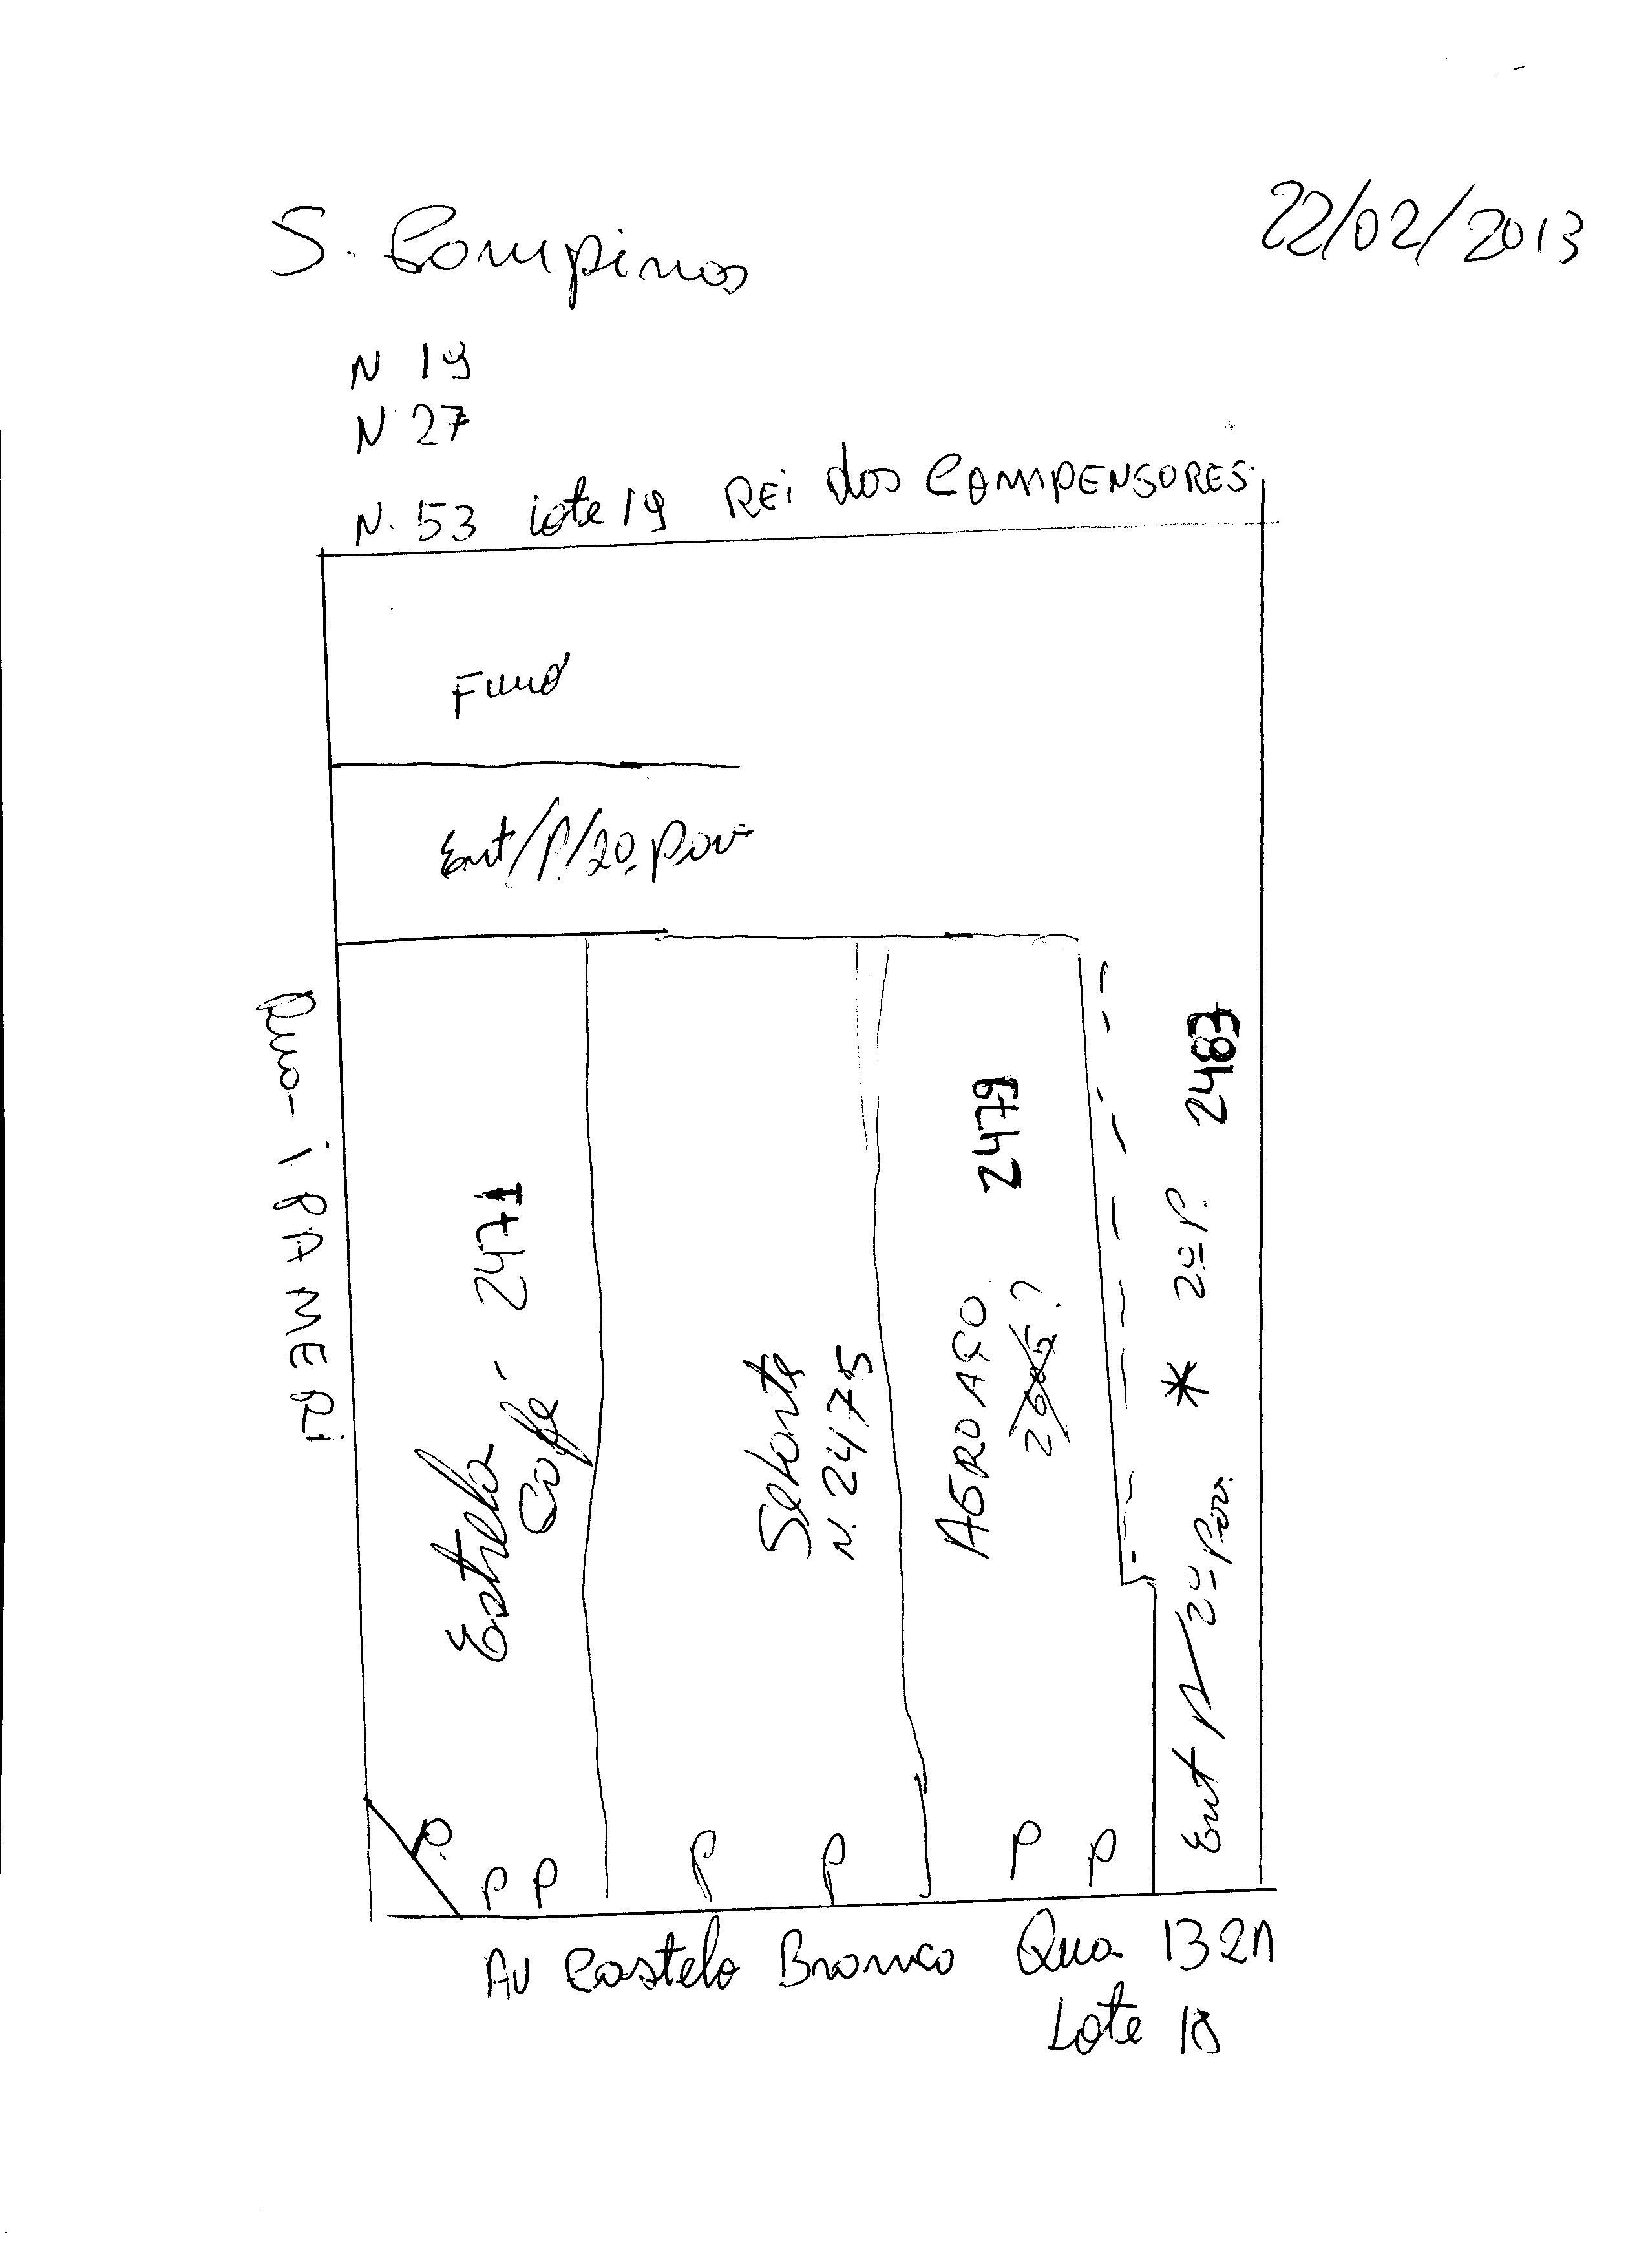 22/02/2013
S. Campinas
N 19
N 27
N. 53 Lote 19 REi dos COMPENSORES.
Fund
Ent/P/2º Pav
Rua - iPAMERi
Estrela Café - 2471
Selonte
N. 2475
AGROAÇO 2479
2605?
* 2º P. 2483
Ent P/ 2º Pav.
P
P P
P P
P P
AV Castelo Branco Qua 132A
Lote 18